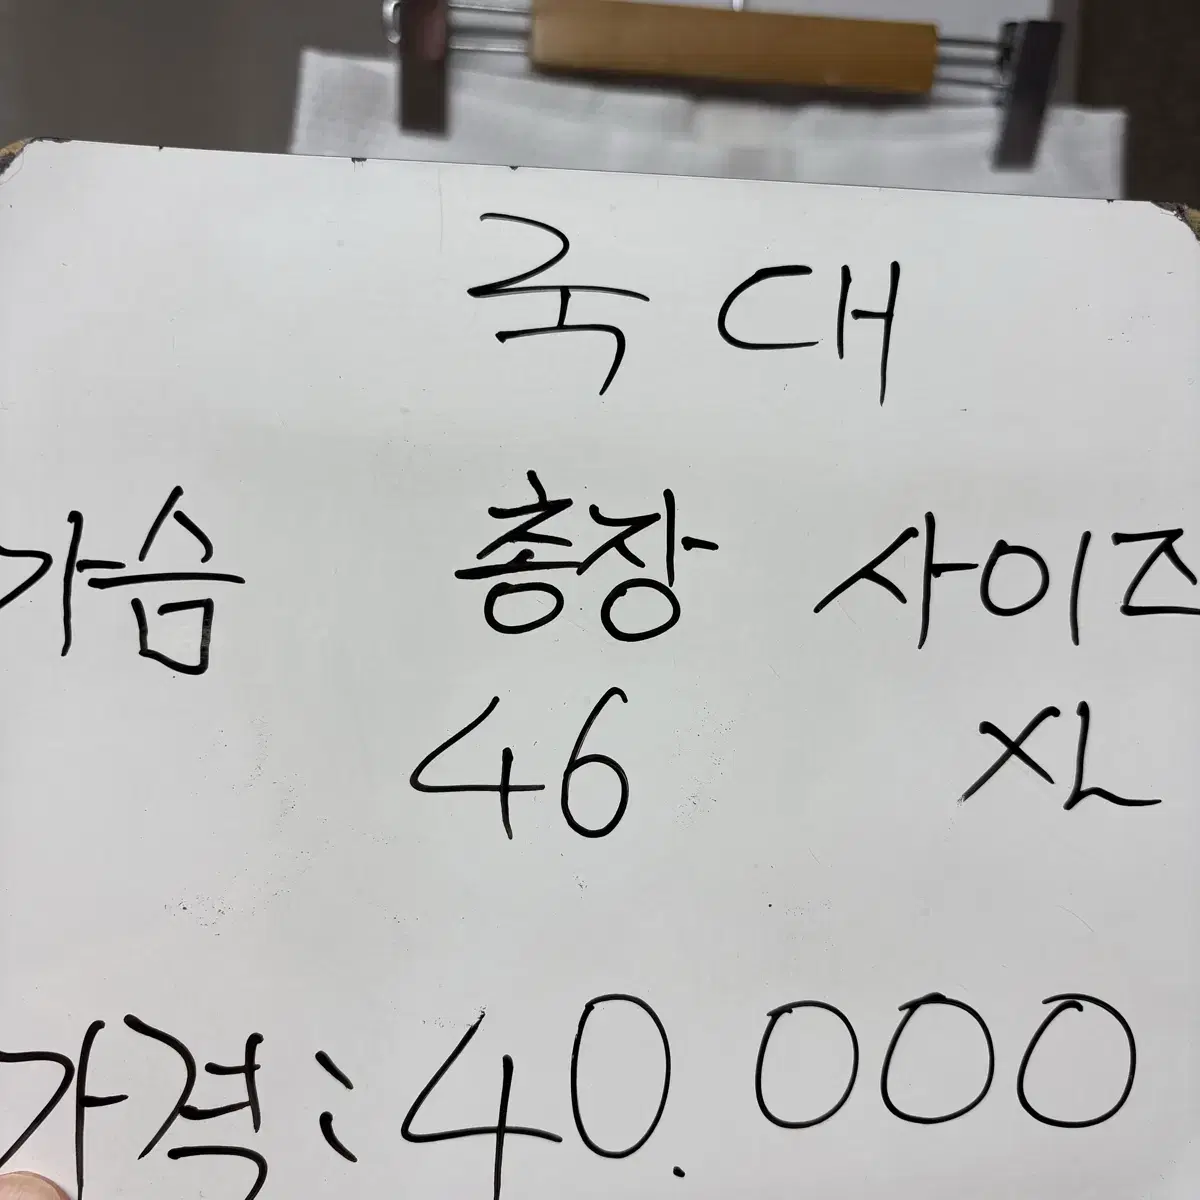 국대
가슴 총장 사이즈
46 XL
가격: 40.000